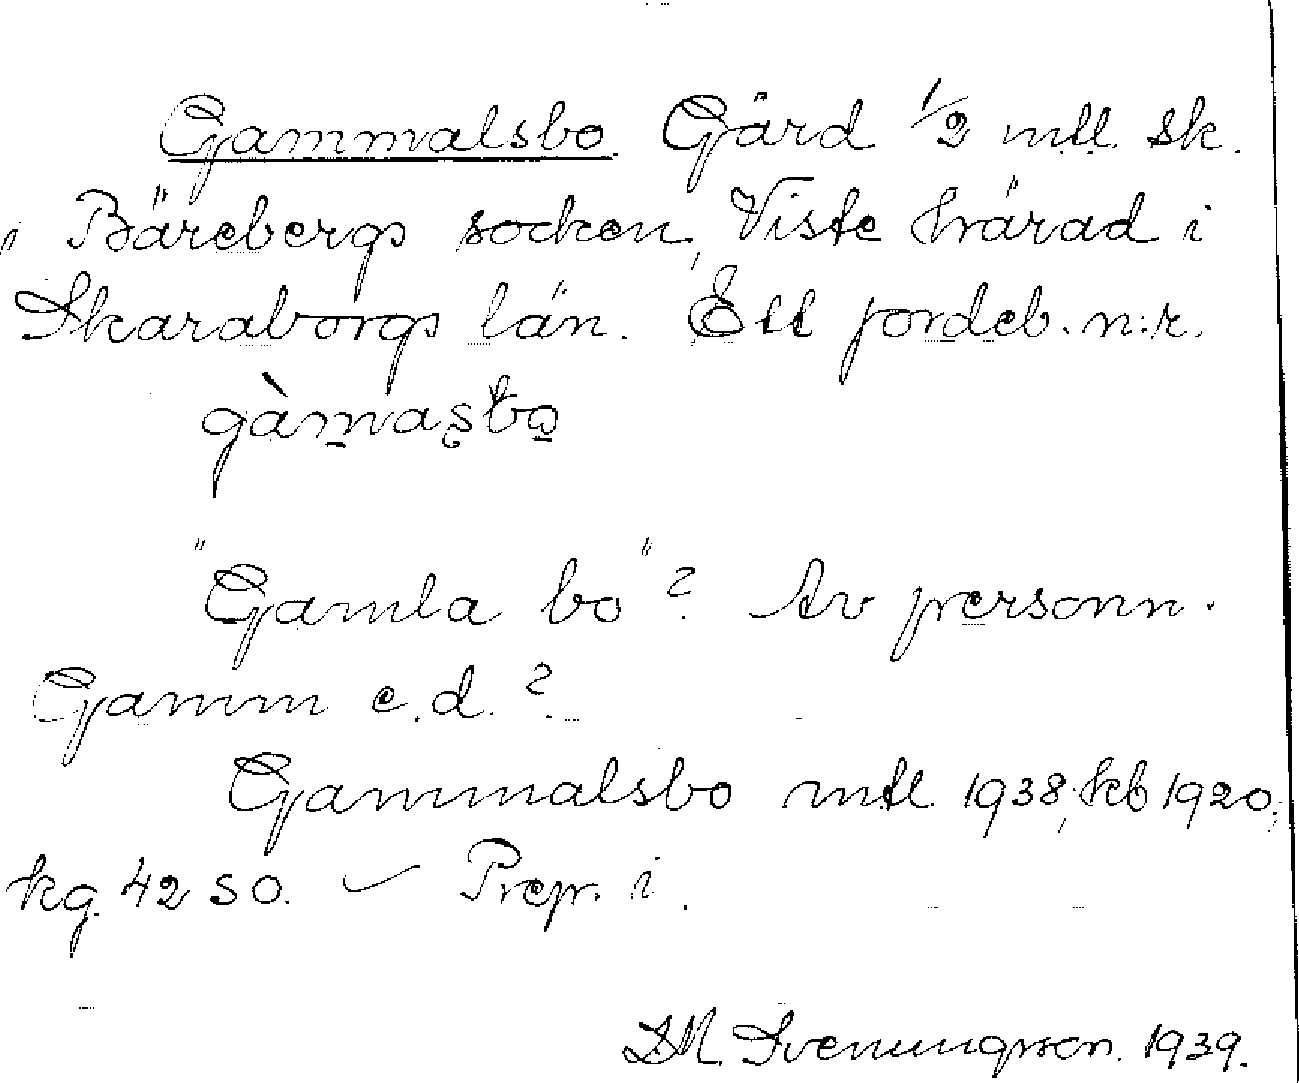 Gammalsbo Gård 1/2 mtl. sk.
i Bärebergs socken, Viste härad i
Skaraborgs län. Ett jordeb. n:r.
gàmasbo
"Gamla bo"? Av personn.
Gamm e.d.?
Gammalsbo mtl. 1938; kb 1920;
kg. 42 SO. — Prep. i.
Svenungsson. 1939.